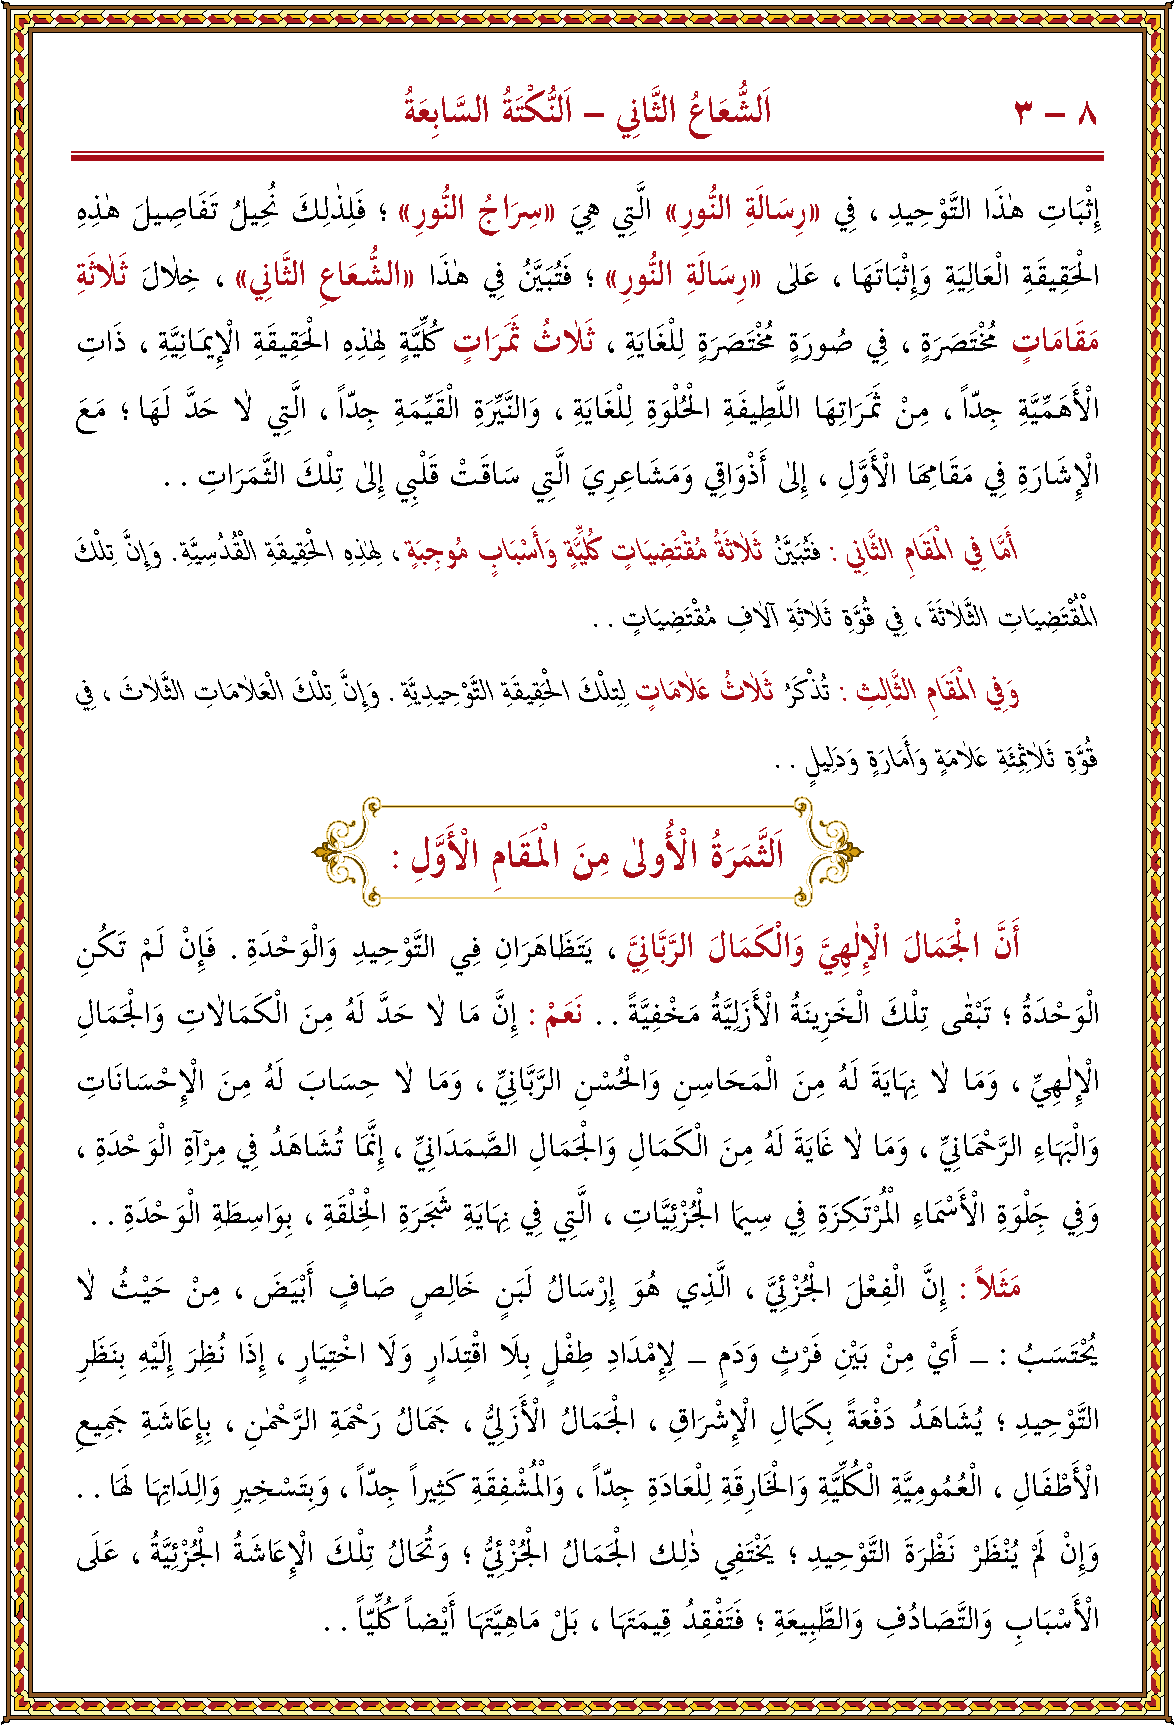 ٨ – ٣ اَلشُّعَاعُ الثَّانِي – اَلنُّكْتَةُ السَّابِعَةُ
إِثْبَاتِ هٰذَا التَّوْحِيدِ ، فِي «رِسَالَةِ النُّورِ» الَّتِي هِيَ «سِرَاجُ النُّورِ» ؛ فَلِذٰلِكَ نُحِيلُ تَفَاصِيلَ هٰذِهِ
الْحَقِيقَةِ الْعَالِيَةِ وَإِثْبَاتَهَا ، عَلٰى «رِسَالَةِ النُّورِ» ؛ فَتُبَيَّنُ فِي هٰذَا «الشُّعَاعِ الثَّانِي» ، خِلَالَ ثَلَاثَةِ
مَقَامَاتٍ مُخْتَصَرَةٍ ، فِي صُورَةٍ مُخْتَصَرَةٍ لِلْغَايَةِ ، ثَلَاثُ ثَمَرَاتٍ كُلِّيَّةٍ لِهٰذِهِ الْحَقِيقَةِ الْإِيمَانِيَّةِ ، ذَاتِ
الْأَهَمِّيَّةِ جِدّاً ، مِنْ ثَمَرَاتِهَا اللَّطِيفَةِ الْحُلْوَةِ لِلْغَايَةِ ، وَالنَّيِّرَةِ الْقَيِّمَةِ جِدّاً ، الَّتِي لَا حَدَّ لَهَا ؛ مَعَ
الْإِشَارَةِ فِي مَقَامِهَا الْأَوَّلِ ، إِلٰى أَذْوَاقِي وَمَشَاعِرِيَ الَّتِي سَاقَتْ قَلْبِي إِلٰى تِلْكَ الثَّمَرَاتِ . .
أَمَّا فِي الْمَقَامِ الثَّانِي : فَتُبَيَّنُ ثَلَاثَةُ مُقْتَضِيَاتٍ كُلِّيَّةٍ وَأَسْبَابٍ مُوجِبَةٍ ، لِهٰذِهِ الْحَقِيقَةِ الْقُدْسِيَّةِ. وَإِنَّ تِلْكَ
الْمُقْتَضِيَاتِ الثَّلَاثَةَ ، فِي قُوَّةِ ثَلَاثَةِ آلَافِ مُقْتَضِيَاتٍ . .
وَفِي الْمَقَامِ الثَّالِثِ : تُذْكَرُ ثَلَاثُ عَلَامَاتٍ لِتِلْكَ الْحَقِيقَةِ التَّوْحِيدِيَّةِ . وَإِنَّ تِلْكَ الْعَلَامَاتِ الثَّلَاثَ ، فِي
قُوَّةِ ثَلَاثِمِئَةِ عَلَامَةٍ وَأَمَارَةٍ وَدَلِيلٍ . .
اَلثَّمَرَةُ الْأُولٰى مِنَ الْمَقَامِ الْأَوَّلِ :
أَنَّ الْجَمَالَ الْإِلٰهِيَّ وَالْكَمَالَ الرَّبَّانِيَّ ، يَتَظَاهَرَانِ فِي التَّوْحِيدِ وَالْوَحْدَةِ . فَإِنْ لَمْ تَكُنِ
الْوَحْدَةُ ؛ تَبْقٰى تِلْكَ الْخَزِينَةُ الْأَزَلِيَّةُ مَخْفِيَّةً . . نَعَمْ : إِنَّ مَا لَا حَدَّ لَهُ مِنَ الْكَمَالَاتِ وَالْجَمَالِ
الْإِلٰهِيِّ ، وَمَا لَا نِهَايَةَ لَهُ مِنَ الْمَحَاسِنِ وَالْحُسْنِ الرَّبَّانِيِّ ، وَمَا لَا حِسَابَ لَهُ مِنَ الْإِحْسَانَاتِ
وَالْبَهَاءِ الرَّحْمَانِيِّ ، وَمَا لَا غَايَةَ لَهُ مِنَ الْكَمَالِ وَالْجَمَالِ الصَّمَدَانِيِّ ، إِنَّمَا تُشَاهَدُ فِي مِرْآةِ الْوَحْدَةِ ،
وَفِي جَلْوَةِ الْأَسْمَاءِ الْمُرْتَكِزَةِ فِي سِيمَا الْجُزْئِيَّاتِ ، الَّتِي فِي نِهَايَةِ شَجَرَةِ الْخِلْقَةِ ، بِوَاسِطَةِ الْوَحْدَةِ . .
مَثَلاً : إِنَّ الْفِعْلَ الْجُزْئِيَّ ، الَّذِي هُوَ إِرْسَالُ لَبَنٍ خَالِصٍ صَافٍ أَبْيَضَ ، مِنْ حَيْثُ لَا
يُحْتَسَبُ : – أَيْ مِنْ بَيْنِ فَرْثٍ وَدَمٍ – لِإِمْدَادِ طِفْلٍ بِلَا اقْتِدَارٍ وَلَا اخْتِيَارٍ ، إِذَا نُظِرَ إِلَيْهِ بِنَظَرِ
التَّوْحِيدِ ؛ يُشَاهَدُ دَفْعَةً بِكَمَالِ الْإِشْرَاقِ ، الْجَمَالُ الْأَزَلِيُّ ، جَمَالُ رَحْمَةِ الرَّحْمٰنِ ، بِإِعَاشَةِ جَمِيعِ
الْأَطْفَالِ ، الْعُمُومِيَّةِ الْكُلِّيَّةِ وَالْخَارِقَةِ لِلْعَادَةِ جِدّاً ، وَالْمُشْفِقَةِ كَثِيراً جِدّاً ، وَبِتَسْخِيرِ وَالِدَاتِهَا لَهَا . .
وَإِنْ لَمْ يُنْظَرْ نَظْرَةَ التَّوْحِيدِ ؛ يَخْتَفِي ذٰلِكَ الْجَمَالُ الْجُزْئِيُّ ؛ وَتُحَالُ تِلْكَ الْإِعَاشَةُ الْجُزْئِيَّةُ ، عَلَى
الْأَسْبَابِ وَالتَّصَادُفِ وَالطَّبِيعَةِ ؛ فَتَفْقِدُ قِيمَتَهَا ، بَلْ مَاهِيَّتَهَا أَيْضاً كُلِّيّاً . .